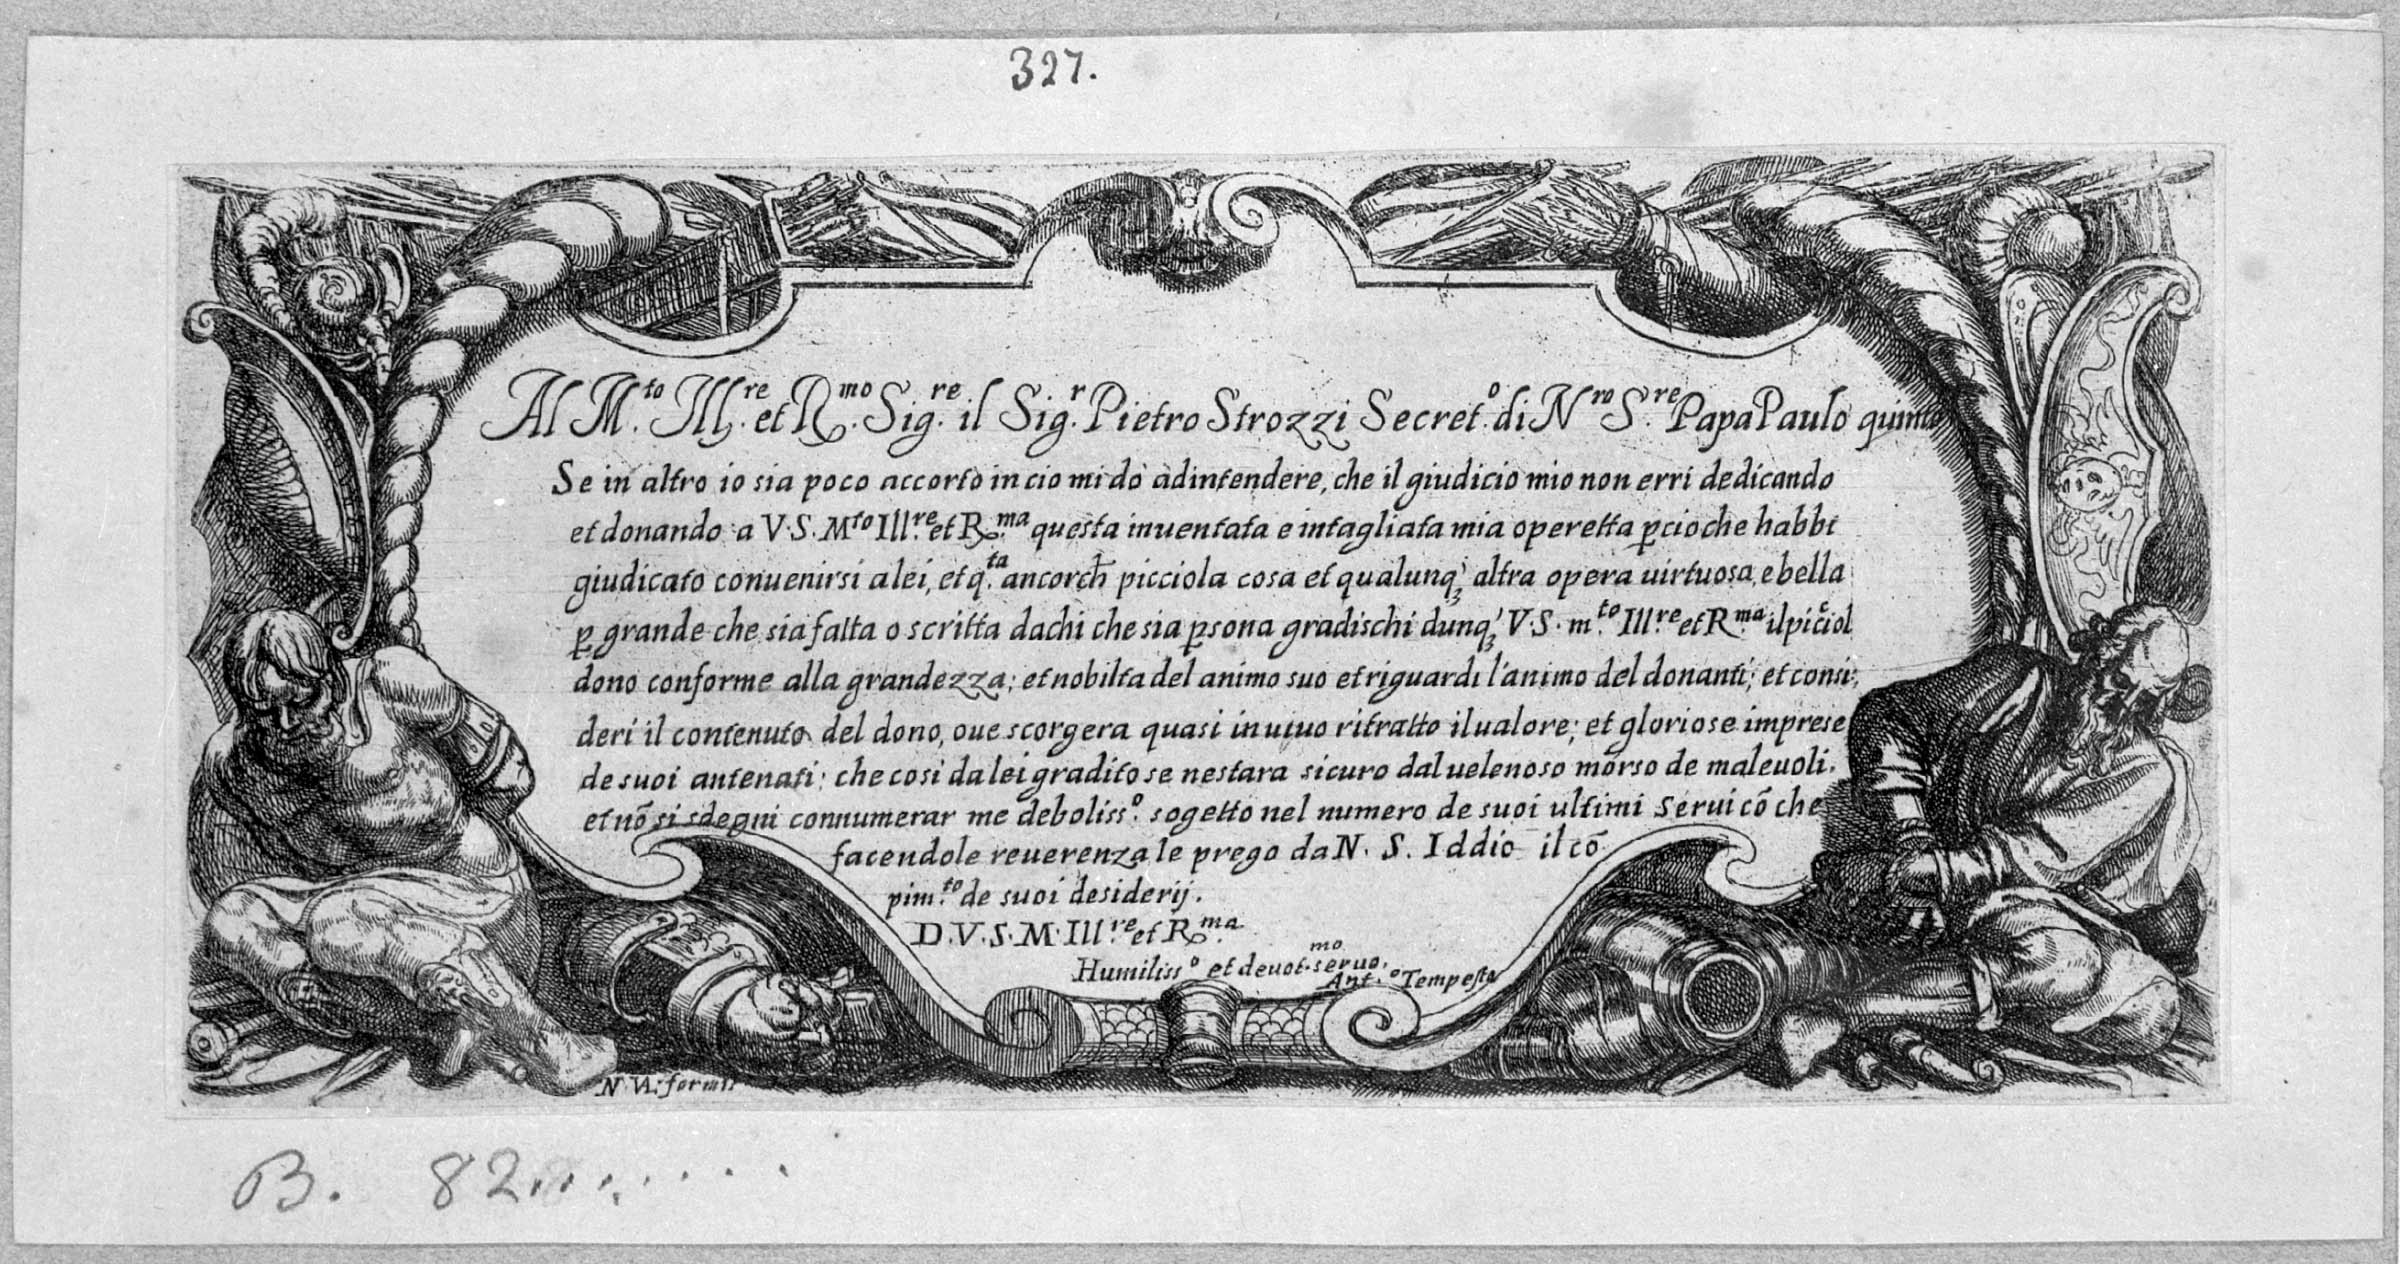 327.
Al M.to Ill.re et R.mo Sig.re il Sig.r Pietro Strozzi Secret.o di N.ro S.re Papa Paulo quinto
Se in altro io sia poco accorto in cio mi dò à dintendere, che il giudicio mio non erri dedicando
et donando a V.S. M.to Ill.re et R.ma questa inuentata e intagliata mia operetta ꝑcioche habbi
giudicato conuenirsi a lei, et q.ta ancorch̃ picciola cosa et qualunqꝫ altra opera uirtuosa, e bella
ꝑ grande che sia fatta o scritta da chi che sia ꝑsona gradischi dunqꝫ V.S. m.to Ill.re et R.ma il picciol
dono conforme alla grandezza; et nobilta del animo suo et riguardi l'animo del donanti; et consi,
deri il contenuto del dono, oue scorgera quasi in uiuo ritratto il ualore; et gloriose imprese
de suoi antenati; che cosi da lei gradito se nestara sicuro dal uelenoso morso de maleuoli.
et nõ si sdegni connumerar me deboliss.o sogetto nel numero de suoi ultimi serui cõ che
facendole reuerenza le prego da N. S. Iddio il cõ
pim.to de suoi desiderij.
D.V.S.M. Ill.re et R.ma
Humiliss.o et deuot.mo seruo.
Ant.o Tempesta
N. VA: formis
B. 82........